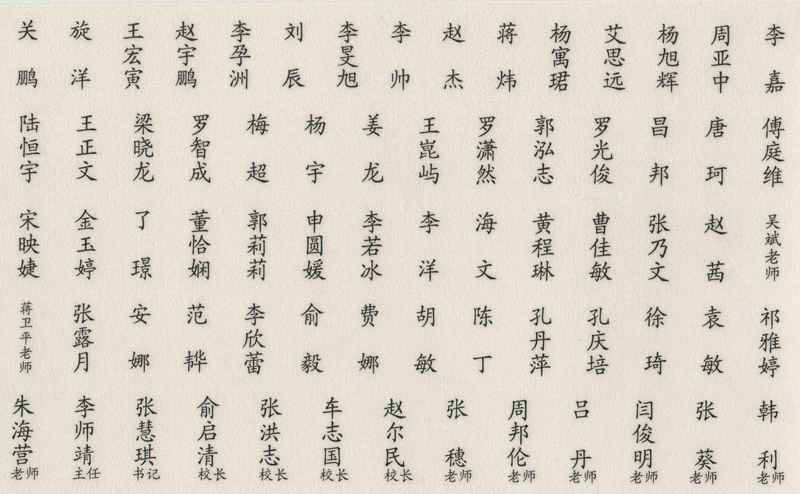 关鹏 旋洋 王宏寅 赵宇鹏 李孕洲 刘辰 李旻旭 李帅 赵杰 蒋炜 杨寓珺 艾思远 杨旭辉 周亚中 李嘉
陆恒宇 王正文 梁晓龙 罗智成 梅超 杨宇 姜龙 王崑屿 罗潇然 郭泓志 罗光俊 昌邦 唐珂 傅庭维
宋映婕 金玉婷 了璟 董恰娴 郭莉莉 申圆媛 李若冰 李洋 海文 黄程琳 曹佳敏 张乃文 赵茜 吴斌老师
蒋卫平老师 张露月 安娜 范 李欣蕾 俞毅 费娜 胡敏 陈丁 孔丹萍 孔庆培 徐琦 袁敏 祁雅婷
朱海营老师 李师靖主任 张慧琪书记 俞启清校长 张洪志校长 车志国校长 赵尔民校长 张穗老师 周邦伦老师 吕丹老师 闫俊明老师 张葵老师 韩利老师